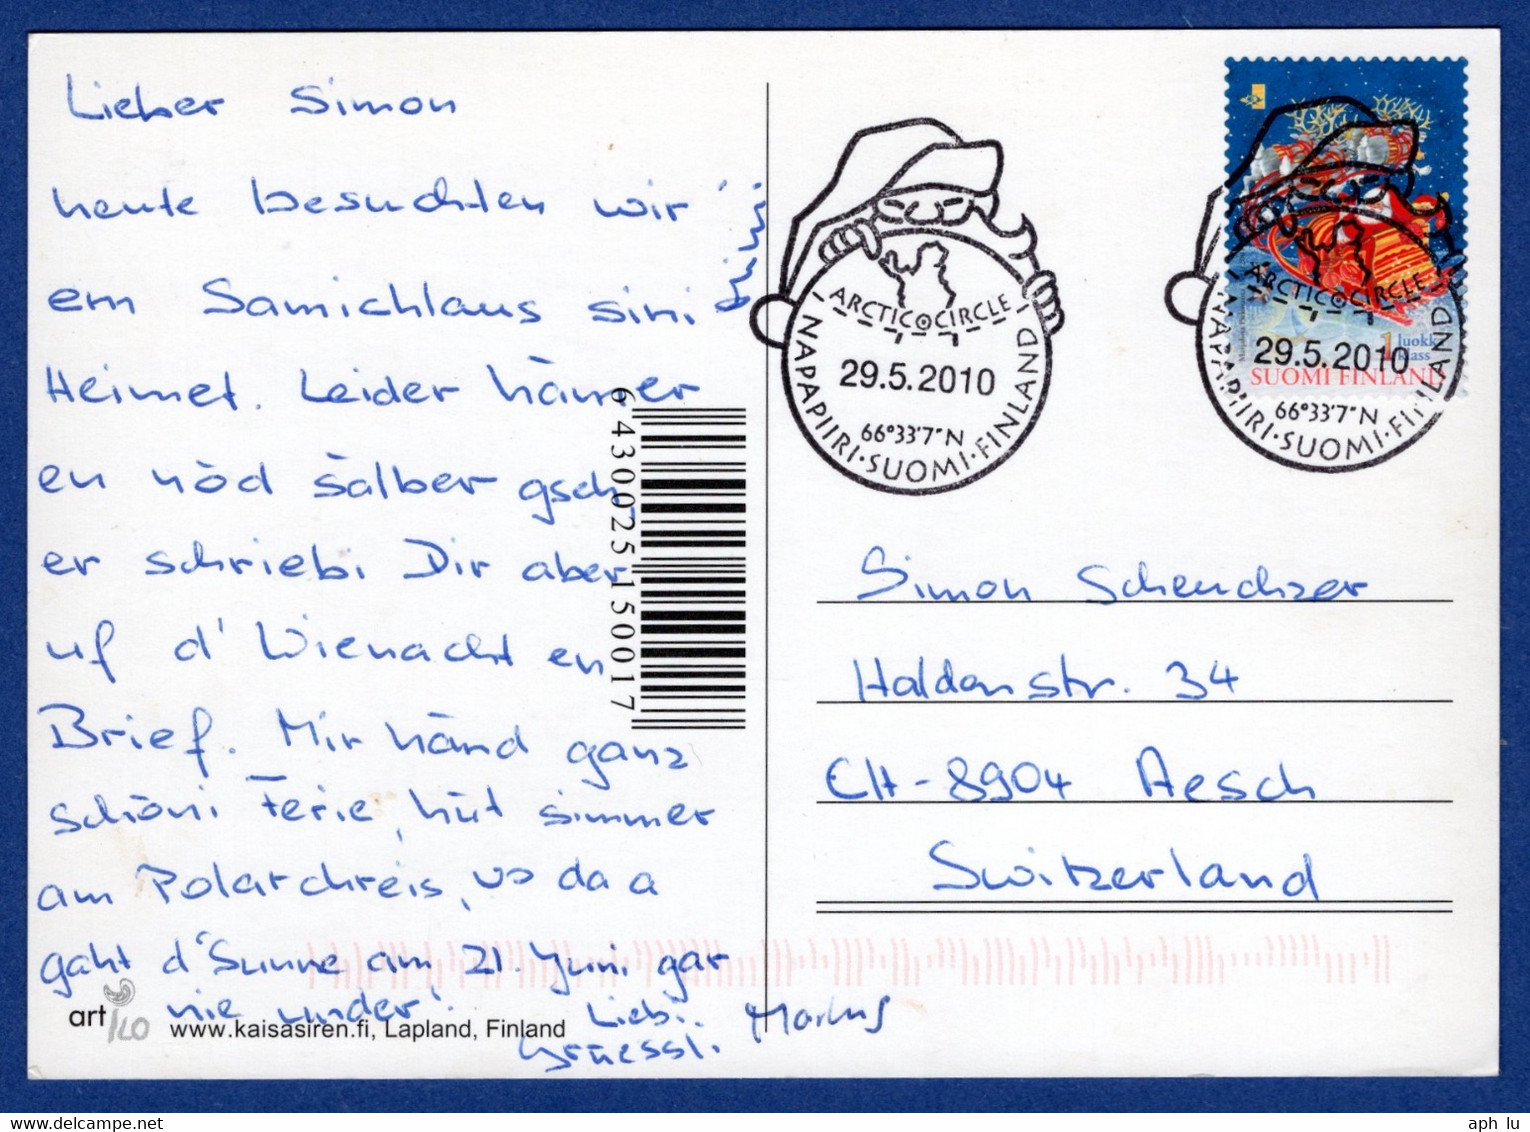 Lieber Simon
heute besuchten wir
em Samichlaus sini
Heimet. Leider hämer
en nöd sälber gseh,
er schriebi Dir aber
uf d'Wienacht en
Brief. Mir händ ganz
schöni Ferie, hüt simmer
am Polarchreis, wo da a
gaht d'Sunne am 21. Juni gar
nie under!
Liebi
Grüessli.
Markus
art
www.kaisasiren.fi, Lapland, Finland
6 430025 150017
ARCTIC CIRCLE
29.5.2010
66°33'7"N
NAPAPIIRI·SUOMI·FINLAND
1 luokka
klass
SUOMI FINLAND
ARCTIC CIRCLE
29.5.2010
66°33'7"N
NAPAPIIRI·SUOMI·FINLAND
Simon Scheuchzer
Haldenstr. 34
CH-8904 Aesch
Switzerland
aph lu